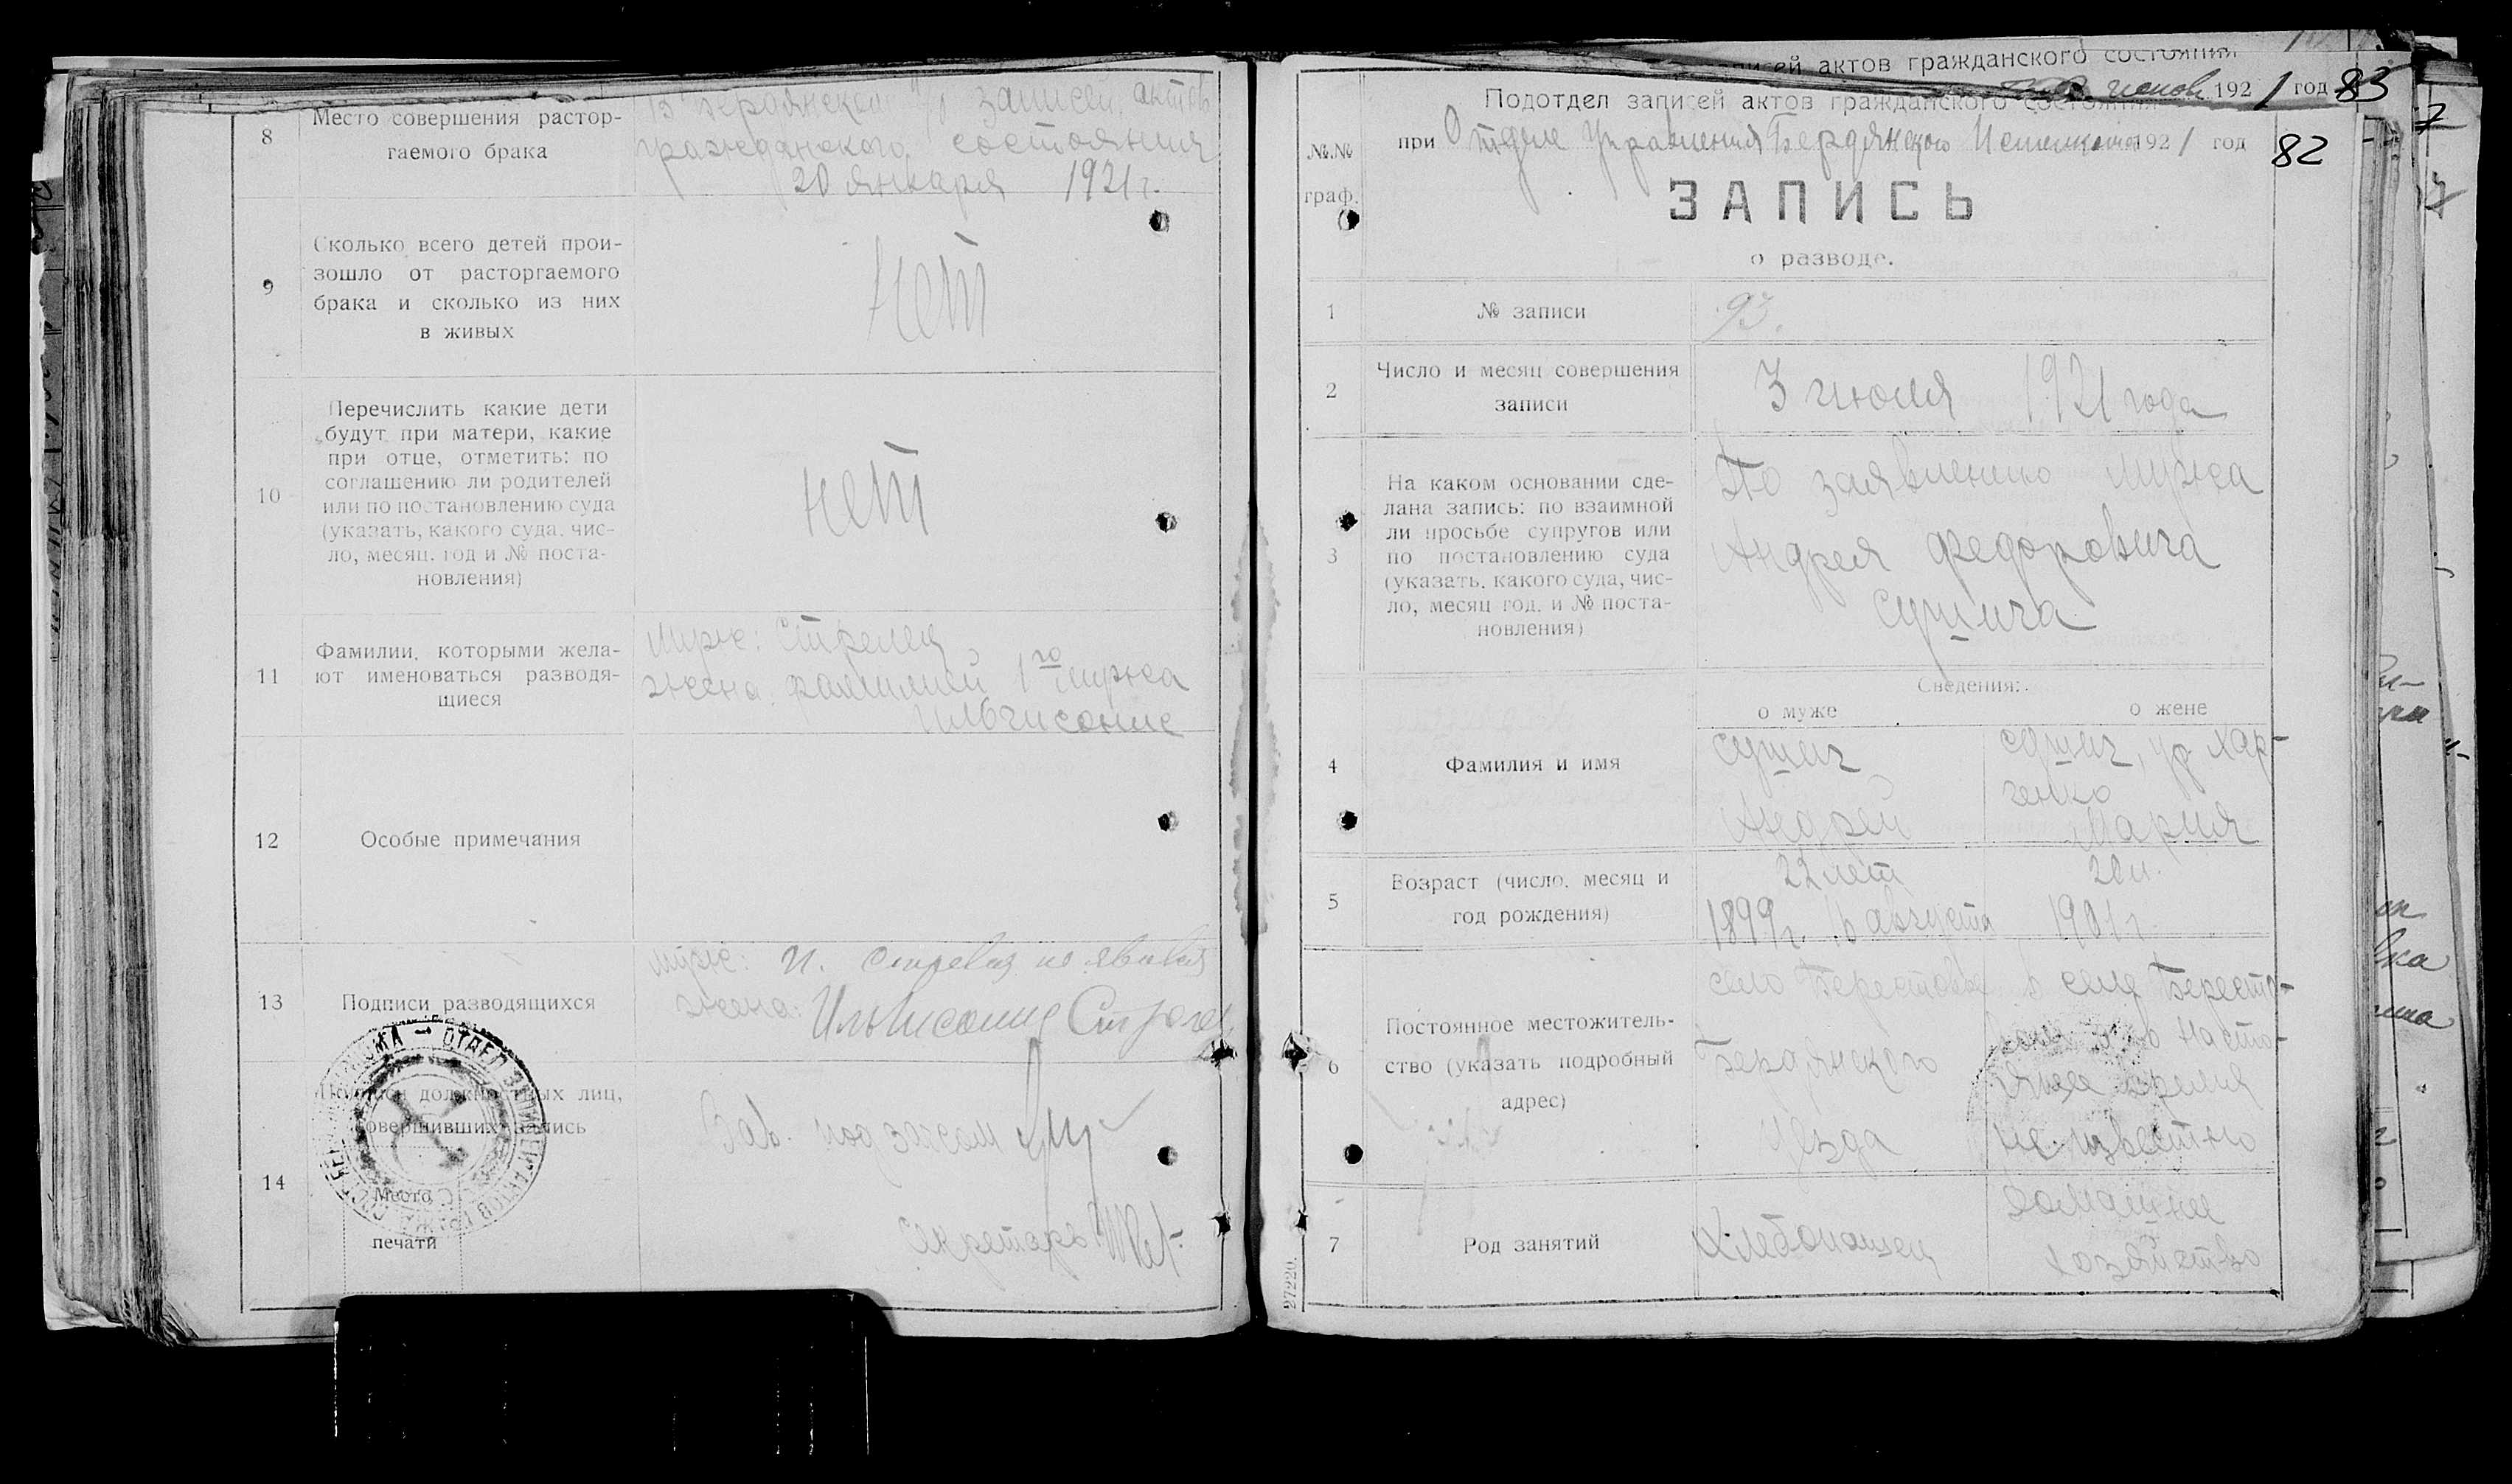 8
Место совершения растор-
гаемого брака
В Бердянском п/о записей актов
гражданского состояния
20 января 1921 г.
9
Сколько всего детей прои-
зошло от расторгаемого
брака и сколько из них
в живых
нет
10
Перечислить какие дети
будут при матери, какие
при отце, отметить: по
соглашению ли родителей
или по постановлению суда
(указать, какого суда, чис-
ло, месяц, год и № поста-
новления)
нет
11
Фамилии, которыми жела-
ют именоваться разводя-
щиеся
муж: Стрелец
жена: фамилией 1го мужа
12
Особые примечания
13
Подписи разводящихся
муж: И.
жена:
14
Подписи должностных лиц,
совершивших запись
Место
печати
Зав. подзагсом
Секретарь
записей актов гражданского состояния
1921 год 83
Подотдел записей актов гражданского состояния
при Отделе Управления Бердянского Исполкома 1921 год
82
№№
граф.
ЗАПИСЬ
о разводе.
1
№ записи
93.
2
Число и месяц совершения
записи
3 июля 1921 года
3
На каком основании сде-
лана запись: по взаимной
ли просьбе супругов или
по постановлению суда
(указать, какого суда, чис-
ло, месяц, год, и № поста-
новления)
По заявлению мужа
Андрея Федоровича
Сушича
Сведения:
о муже
о жене
4
Фамилия и имя
Сушич
Андрей
Сушич, ур Хар-
ченко
Мария
5
Возраст (число, месяц и
год рождения)
22 лет
1899 г. 16 августа
20 л.
1901 г
6
Постоянное местожитель-
ство (указать подробный
адрес)
село Берестовое
Бердянского
уезда
в селе Бересто-
вом в насто-
ящее время
не известно
7
Род занятий
Хлебопашец
домашнее
хозяйство
27220.